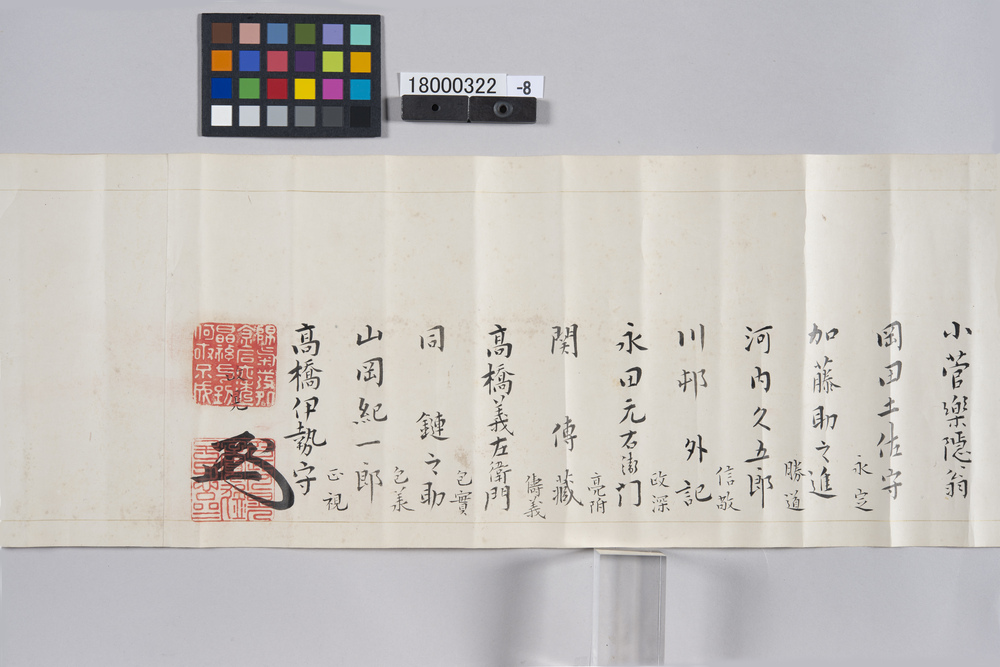 18000322 -8
小菅樂隠翁
岡田土佐守
永定
加藤助之進
勝道
河内久五郎
信敬
川邨外記
政深
永田元右衛门
関傳藏
儔義
高橋義左衛門
包實
同鏈之助
包美
山岡紀一郎
高橋伊勢守
正視